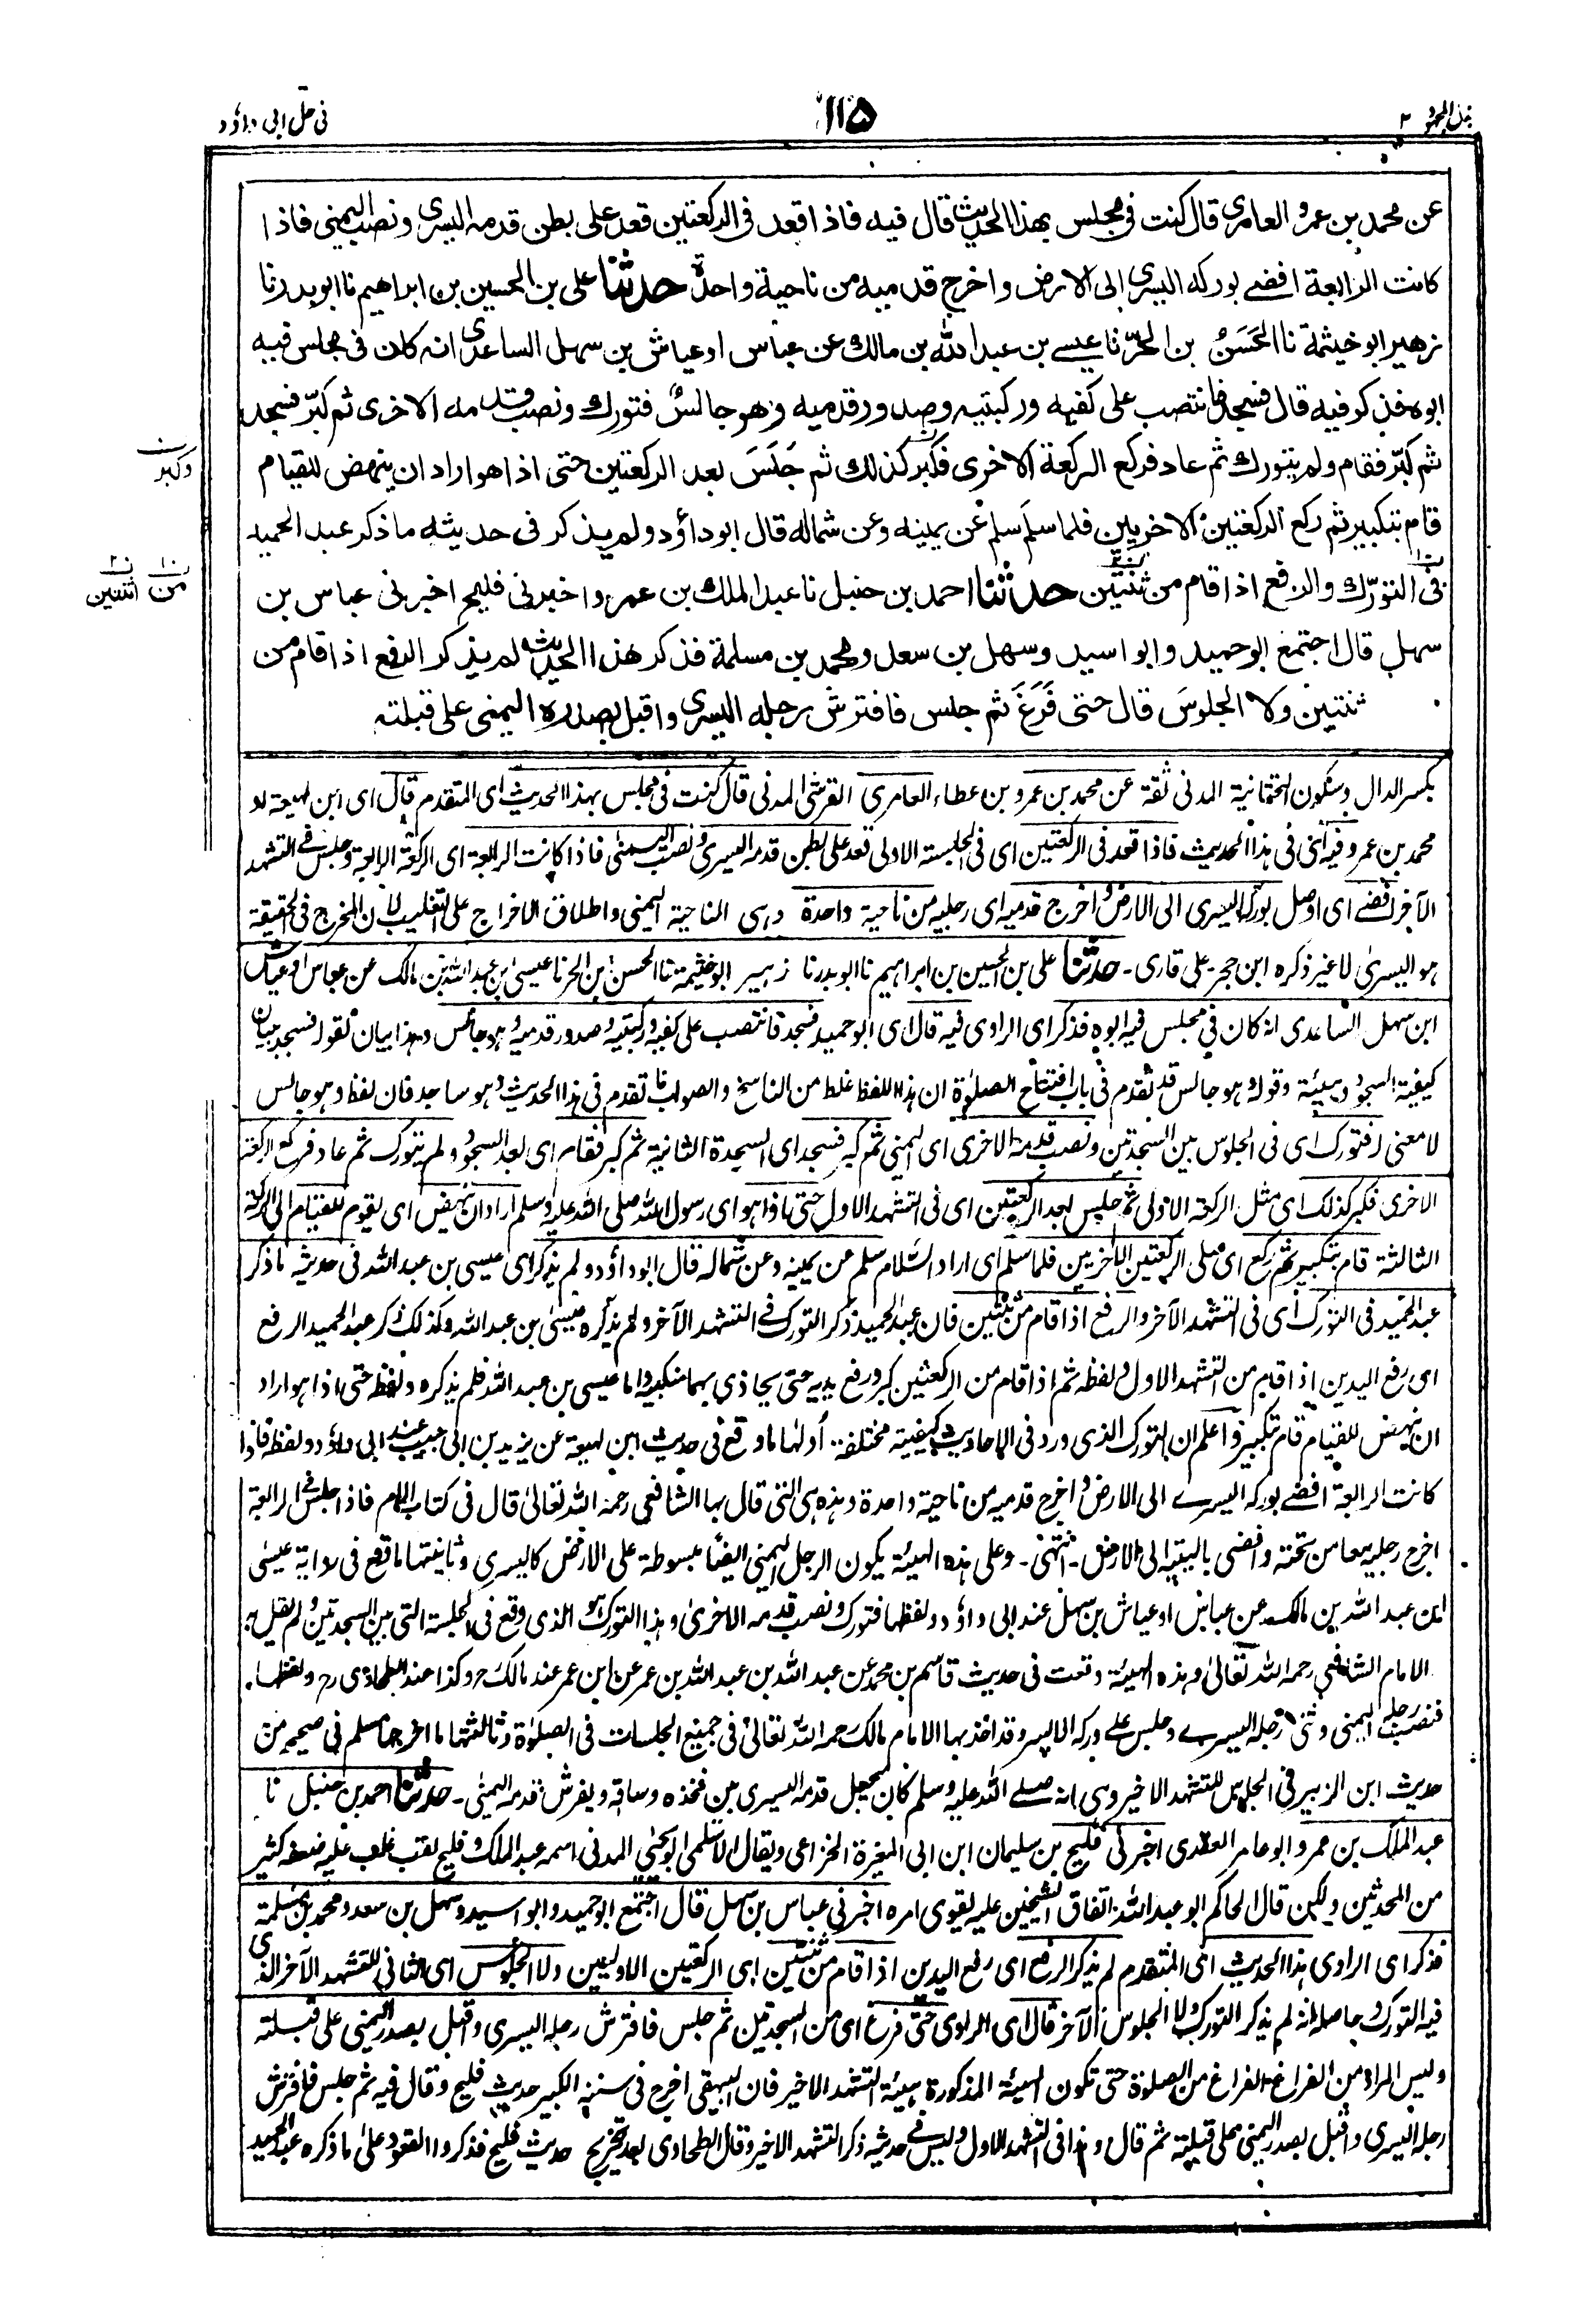 بذل المجهود ٢
١١٥
فى حل ابى داؤد
عن محمد بن عمرو العامرى قال كنت فى مجلس بهذا الحديث قال فيه فاذا قعد فى الركعتين قعد على بطن قدمه اليسرى ونصب اليمنى فاذا
كانت الرابعة افضى بوركه اليسرى الى الارض واخرج قدميه من ناحية واحدة حدثنا على بن الحسين بن ابراهيم نا ابو بدر نا
زهير ابو خيثمة نا الحَسَنُ بن الحُرّ نا عيسى بن عبد الله بن مالك عن عباس او عياش بن سهل الساعدى انه كان فى مجلس فيه
ابوه فذكر فيه قال فسجد فانتصب على كفيه وركبتيه وصدور قدميه وهو جالسٌ فتورك ونصب قدمه الاخرى ثم كبّر فسجد
ثم كبّر فقام ولم يتورك ثم عاد فركع الركعة الاخرى فكبر كذلك ثم جَلَسَ بعد الركعتين حتى اذا هو اراد ان ينهض للقيام
وكبر
قام بتكبير ثم ركع الركعتين الاخريين فلما سلم سلم عن يمينه وعن شماله قال ابو داؤد ولم يذكر فى حديثه ما ذكر عبد الحميد
فى التورّك والرفع اذا قام من ثنتين حدثنا احمد بن حنبل نا عبد الملك بن عمرو اخبرنى فليح اخبرنى عباس بن
من اثنتين
سهل قال اجتمع ابو حميد وابو اسيد وسهل بن سعد ومحمد بن مسلمة فذكر هذا الحديث لم يذكر الرفع اذا قام من
ثنتين ولا الجلوسَ قال حتى فَرَغَ ثم جلس فافترش رجله اليسرى واقبل بصدره اليمنى على قبلته
بكسر الدال وسكون التحتانية المدنى ثقة عن محمد بن عمرو بن عطاء العامرى القرشى المدنى قال كنت فى مجلس بهذا الحديث اى المتقدم قال اى ابن لهيعة او
محمد بن عمرو فيه اى فى هذا الحديث فاذا قعد فى الركعتين اى فى الجلسة الاولى قعد على بطن قدمه اليسرى ونصب اليمنى فاذا كانت الرابعة اى الركعة الرابعة وجلس فى التشهد
الآخر افضى اى اوصل بوركه اليسرى الى الارض واخرج قدميه اى رجليه من ناحية واحدة وهى الناحية اليمنى واطلاق الاخراج على التغليب لان المخرج فى الحقيقة
هو اليسرىٰ لا غير ذكره ابن حجر۔ على قارى۔ حدثنا على بن الحسين بن ابراهيم نا ابو بدر نا زهير ابو خيثمة نا الحسن بن الحر نا عيسىٰ بن عبد الله بن مالك عن عباس او عياش
ابن سهل الساعدى انه كان فى مجلس فيه ابوه فذكر اى الراوى فيه قال اى ابو حميد فسجد فانتصب على كفيه وركبتيه وصدور قدميه وهو جالس وهذا بيان لقوله فسجد بيان
كيفية السجود وهيئة وقوله وهو جالس قد تقدم فى باب افتتاح الصلوٰة ان هذا اللفظ غلط من الناسخ والصواب ما تقدم فى هذا الحديث وهو ساجد فان لفظ وهو جالس
لا معنى له فتورك اى فى الجلوس بين السجدتين ونصب قدمه الاخرى اى اليمنى ثم كبر فسجد اى السجدة الثانية ثم كبر فقام اى بعد السجود ولم يتورك ثم عاد فركع الركعة
الاخرى فكبر كذلك اى مثل الركعة الاولى ثم جلس بعد الركعتين اى فى التشهد الاول حتى اذا هو اى رسول الله صلى الله عليه وسلم اراد ان ينهض اى يقوم للقيام الى الركعة
الثالثة قام بتكبير ثم ركع اى صلى الركعتين الاخريين فلما سلم اى اراد السلام سلم عن يمينه وعن شماله قال ابو داؤد ولم يذكر اى عيسى بن عبد الله فى حديثه ما ذكر
عبد الحميد فى التورك اى فى التشهد الآخر والرفع اذا قام من ثنتين فان عبد الحميد ذكر التورك فى التشهد الآخر ولم يذكره عيسىٰ بن عبد الله وكذلك ذكر عبد الحميد الرفع
اى رفع اليدين اذا قام من التشهد الاول ولفظه ثم اذا قام من الركعتين كبر ورفع يديه حتى يحاذى بهما منكبيه واما عيسى بن عبد الله فلم يذكره ولفظه حتى اذا هو اراد
ان ينهض للقيام قام بتكبير واعلم ان التورك الذى ورد فى الاحاديث بكيفية مختلفة اولها ما وقع فى حديث ابن لهيعة عن يزيد بن ابى حبيب عند ابى داؤد ولفظه فاذا
كانت الرابعة افضى بوركه اليسرى الى الارض واخرج قدميه من ناحية واحدة وهذه هى التى قال بها الشافعى رحمه الله تعالىٰ قال فى كتاب الام فاذا جلس فى الرابعة
اخرج رجليه معا من تحته وافضى باليتيه الى الارض۔ انتهىٰ۔ وعلى هذه الهيئة يكون الرجل اليمنى ايضًا مبسوطة على الارض كاليسرى وثانيتها ما وقع فى رواية عيسىٰ
ابن عبد الله بن مالك عن عباس او عياش بن سهل عند ابى داؤد ولفظها فتورك ونصب قدمه الاخرىٰ وهذا التورك هو الذى وقع فى الجلسة التى بين السجدتين ولم يقل به
الامام الشافعى رحمه الله تعالىٰ وهذه الهيئة وقعت فى حديث قاسم بن محمد عن عبد الله بن عبد الله بن عمر عن ابن عمر عند مالك وكذا عند الطحاوى رح ولفظها
فنصب رجله اليمنى وثنى رجله اليسرى وجلس على وركه الايسر وقد اخذ بها الامام مالك رحمه الله تعالىٰ فى جميع الجلسات فى الصلوٰة وثالثتها ما اخرجها مسلم فى صحيحه من
حديث ابن الزبير فى الجلوس للتشهد الاخير وهى انه صلى الله عليه وسلم كان يجعل قدمه اليسرى بين فخذه وساقه ويفرش قدمه اليمنىٰ۔ حدثنا احمد بن حنبل نا
عبد الملك بن عمرو ابو عامر العقدى اخبرنى فليح بن سليمان ابن ابى المغيرة الخزاعى ويقال الاسلمى ابو يحيىٰ المدنى اسمه عبد الملك وفليح لقب غلب عليه ضعفه كثير
من المحدثين ولكن قال الحاكم ابو عبد الله اتفاق الشيخين عليه يقوى امره اخبرنى عباس بن سهل قال اجتمع ابو حميد وابو اسيد وسهل بن سعد ومحمد بن مسلمة
فذكر اى الراوى هذا الحديث اى المتقدم لم يذكر الرفع اى رفع اليدين اذا قام من ثنتين اى الركعتين الاوليين ولا الجلوس اى الثانى للتشهد الآخر الذى
فيه التورك وحاصله انه لم يذكر التورك ولا الجلوس الآخر قال اى الراوى حتى فرغ اى من السجدتين ثم جلس فافترش رجله اليسرى واقبل بصدر اليمنى على قبلته
وليس المراد من الفراغ الفراغ من الصلوة حتى تكون الهيئة المذكورة هيئة التشهد الاخير فان البيهقى اخرج فى سننه الكبير حديث فليح وقال فيه ثم جلس فافترش
رجله اليسرى واقبل بصدر اليمنى على قبلته ثم قال وهذا فى التشهد الاول وليس فى حديثه ذكر التشهد الاخير وقال الطحاوى بعد تخريج حديث فليح فذكروا القعود علىٰ ما ذكره عبد الحميد